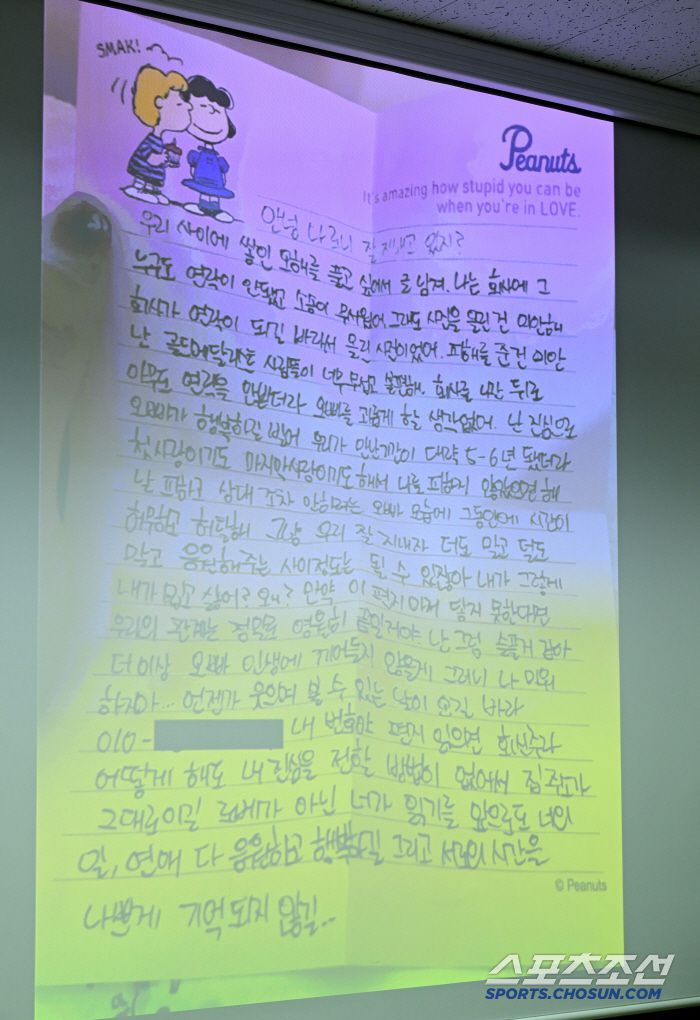 SMAK!
Peanuts
It's amazing how stupid you can be
when you're in LOVE.
안녕 나 잘 지내고 있지?
우리 사이에 쌓인 오해를 풀고 싶어서 글 남겨. 나는 회사에 그
누구도 연락이 안됐고 소송이 무서웠어. 그래도 사진을 올린건 미안해
회사가 연락이 되길 바라서 올린 사진이었어. 피해를 준건 미안
난 골드메달리스트 사람들이 너무 무섭고 불편해. 회사를 나간 뒤로
아무도 연락을 안받더라 오빠를 괴롭게 할 생각 없어. 난 진심으로
오빠가 행복하길 빌어 우리가 만난기간이 대략 5-6년 됐더라
첫사랑이기도 마지막사랑이기도 해서 나를 피하지 않았으면 해
날 피하고 상대 조차 안하려는 오빠 모습에 그동안에 시간이
허무하고 허탈해 그냥 우리 잘 지내자 더도 말고 덜도
말고 응원해주는 사이정도는 될 수 있잖아 내가 그렇게
내가 밉고 싫어? 왜? 만약 이 편지마저 닿지 못한다면
우리의 관계는 정말로 영원히 끝일거야 난 그럼 슬플거 같아
더이상 오빠 인생에 끼어들지 않을게 그러니 나 미워
하지마... 언젠가 웃으며 볼 수 있는 날이 오길 바라
010- 내 번호야 편지 읽으면 회신주라
어떻게 해도 내 진심을 전할 방법이 없어서 집주소가
그대로이길 누가 아닌 너가 읽기를 앞으로도 너의
일, 연애 다 응원하고 행복하길 그리고 서로의 시간을
© Peanuts
나쁘게 기억되지 않길..
스포츠조선
SPORTS.CHOSUN.COM